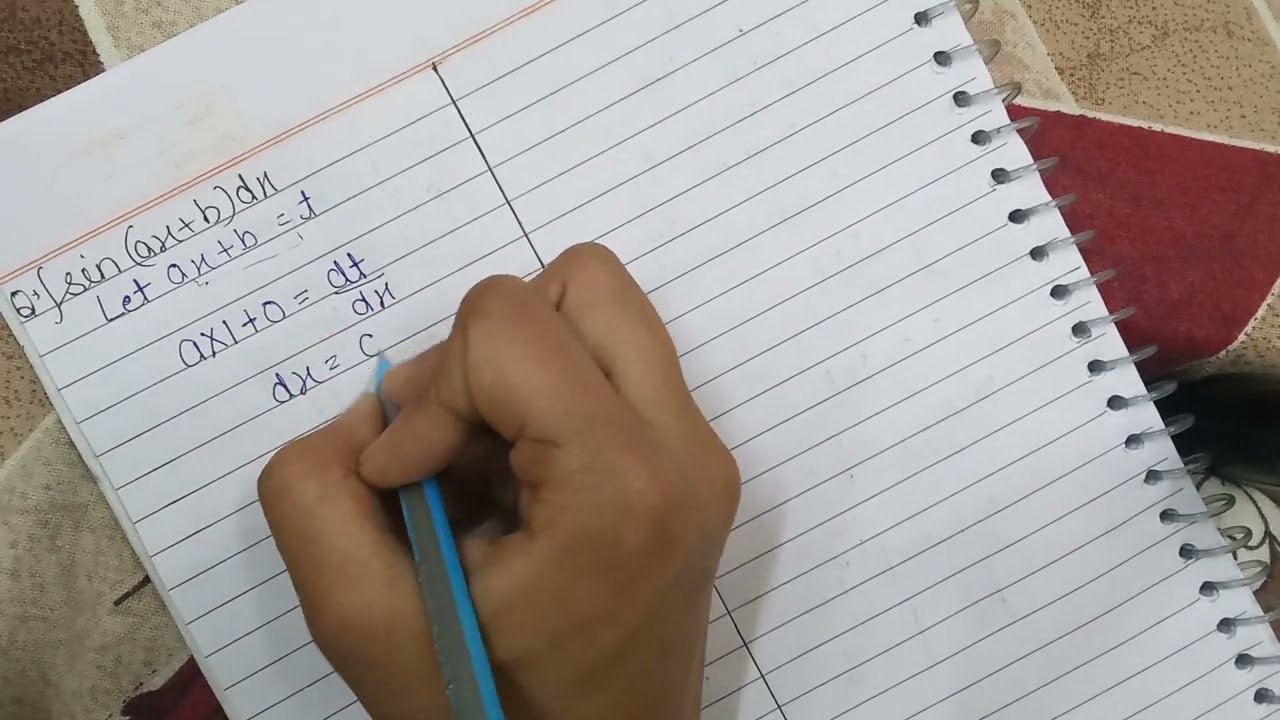 Q:∫sin(ax+b)dx
Let ax+b = t
ax1+0 = dt/dx
dx =